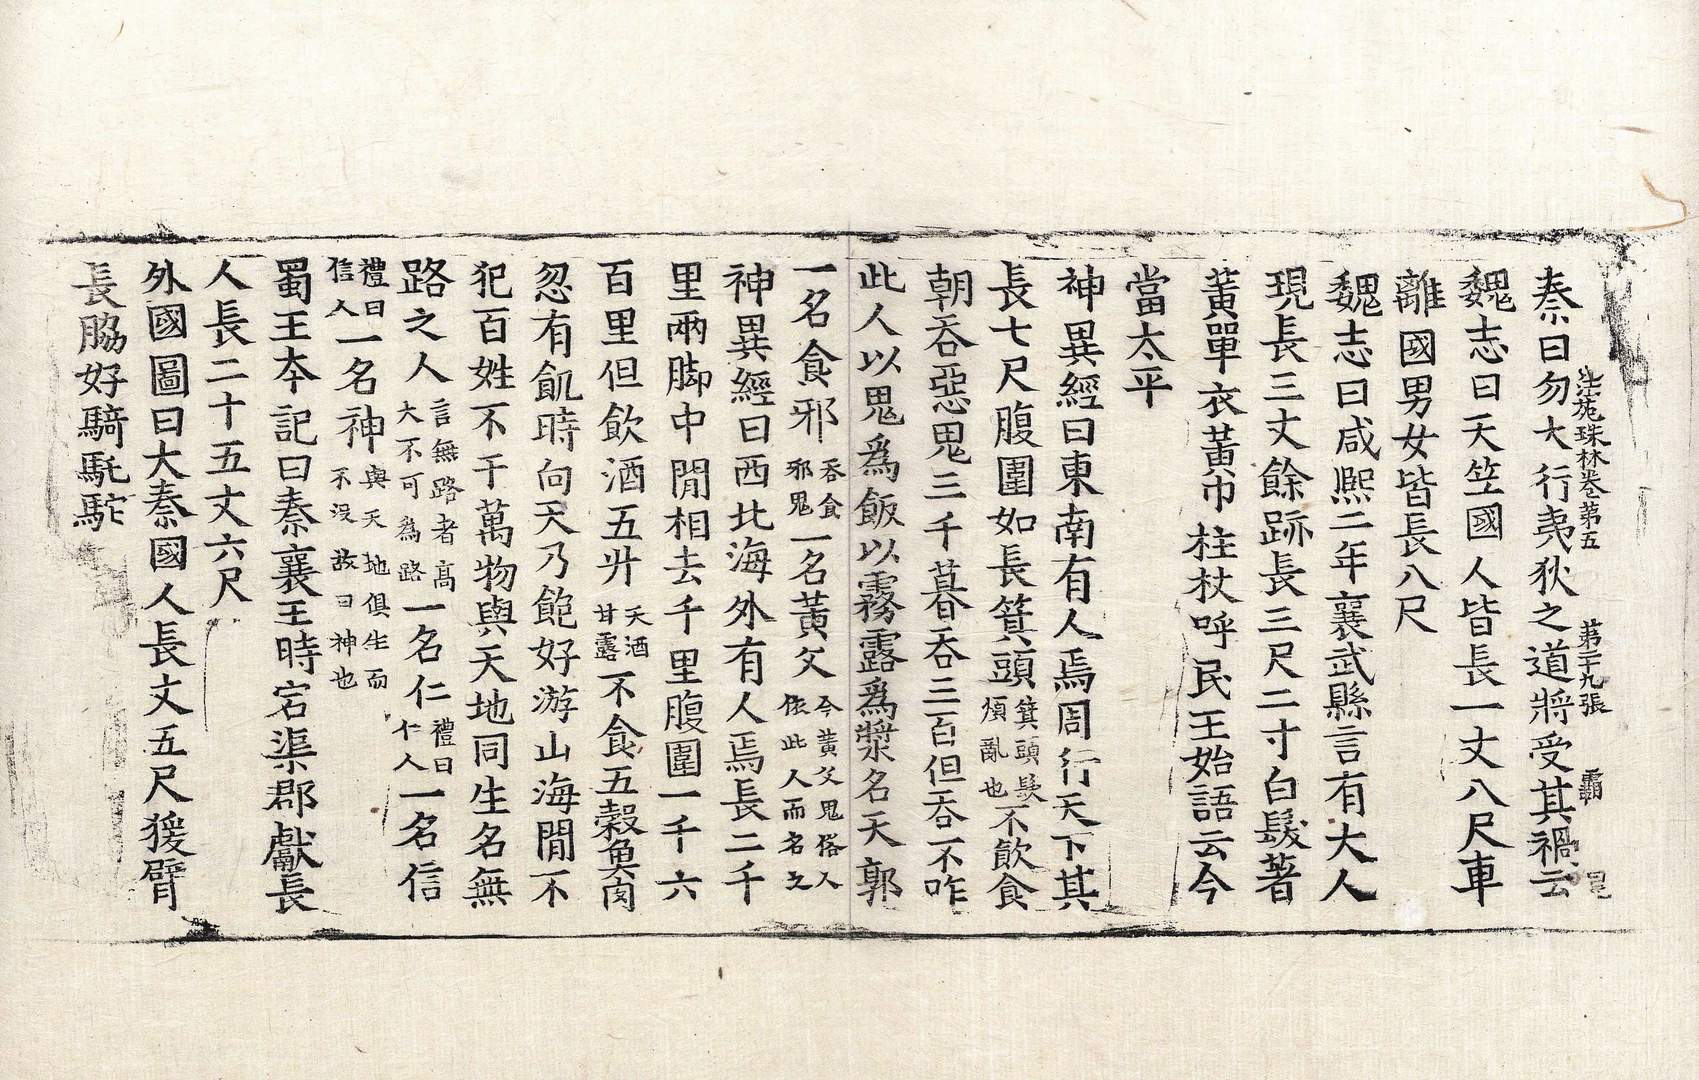 法苑珠林卷第五 第二十九張 霸
秦曰勿大行夷狄之道將受其禍云
魏志曰天竺國人皆長一丈八尺車
離國男女皆長八尺
魏志曰咸熙二年襄武縣言有大人
現長三丈餘跡長三尺二寸白髮著
黃單衣黃巾柱杖呼民王始語云今
當太平
神異經曰東南有人焉周行天下其
長七尺腹圍如長箕頭箕頭髮煩亂也不飲食
朝吞惡鬼三千暮吞三百但吞不咋
此人以鬼為飯以霧露為漿名天郭
一名食邪吞食邪鬼一名黃父今黃父鬼俗人依此人而名之
神異經曰西北海外有人焉長二千
里兩脚中間相去千里腹圍一千六
百里但飲酒五升天酒甘露不食五穀魚肉
忽有飢時向天乃飽好游山海間不
犯百姓不干萬物與天地同生名無
路之人言無路者高大不可為路一名仁禮曰仁人一名信
禮曰信人一名神與天地俱生而不沒故曰神也
蜀王本記曰秦襄王時宕渠郡獻長
人長二十五丈六尺
外國圖曰大秦國人長丈五尺猨臂
長脇好騎駞駝